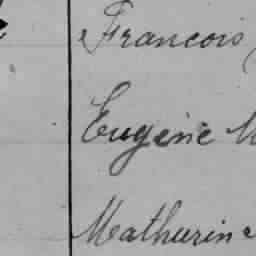 Francois
Eugénie M
Mathurine